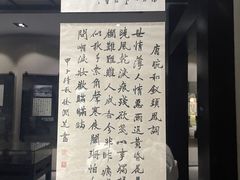 唐琬和釵頭鳳詞
世情薄人情惡雨送黃昏花易
落曉風乾淚痕殘欲箋心事獨語斜
闌難難難人成各今非昨病魂常
似秋千索角聲寒夜闌珊怕人尋
問咽淚裝歡瞞瞞瞞